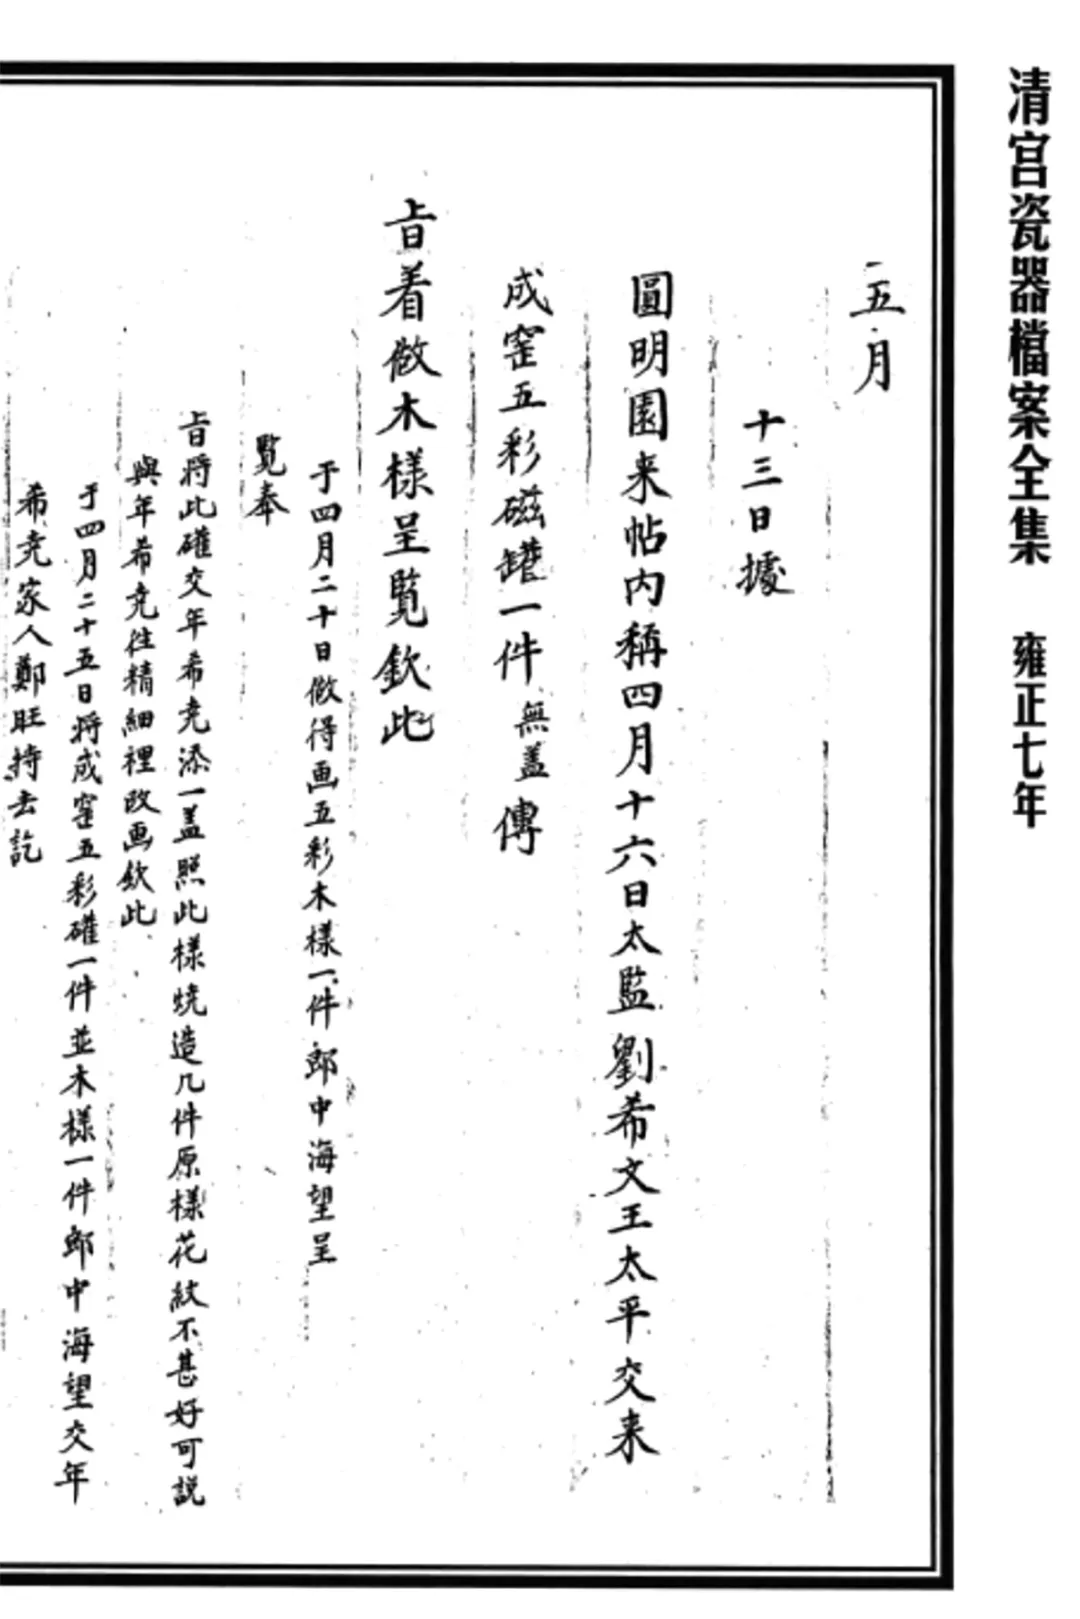 清宮瓷器檔案全集 雍正七年
五月
十三日據
圓明園来帖内稱四月十六日太監劉希文王太平交来
成窑五彩磁罐一件無盖傳
旨着做木樣呈覧欽此
于四月二十日做得画五彩木樣一件郎中海望呈
覧奉
旨將此罐交年希尭添一盖照此樣燒造几件原樣花紋不甚好可説
與年希尭徃精細裡改画欽此
于四月二十五日將成窑五彩罐一件並木樣一件郎中海望交年
希尭家人鄭旺持去訖